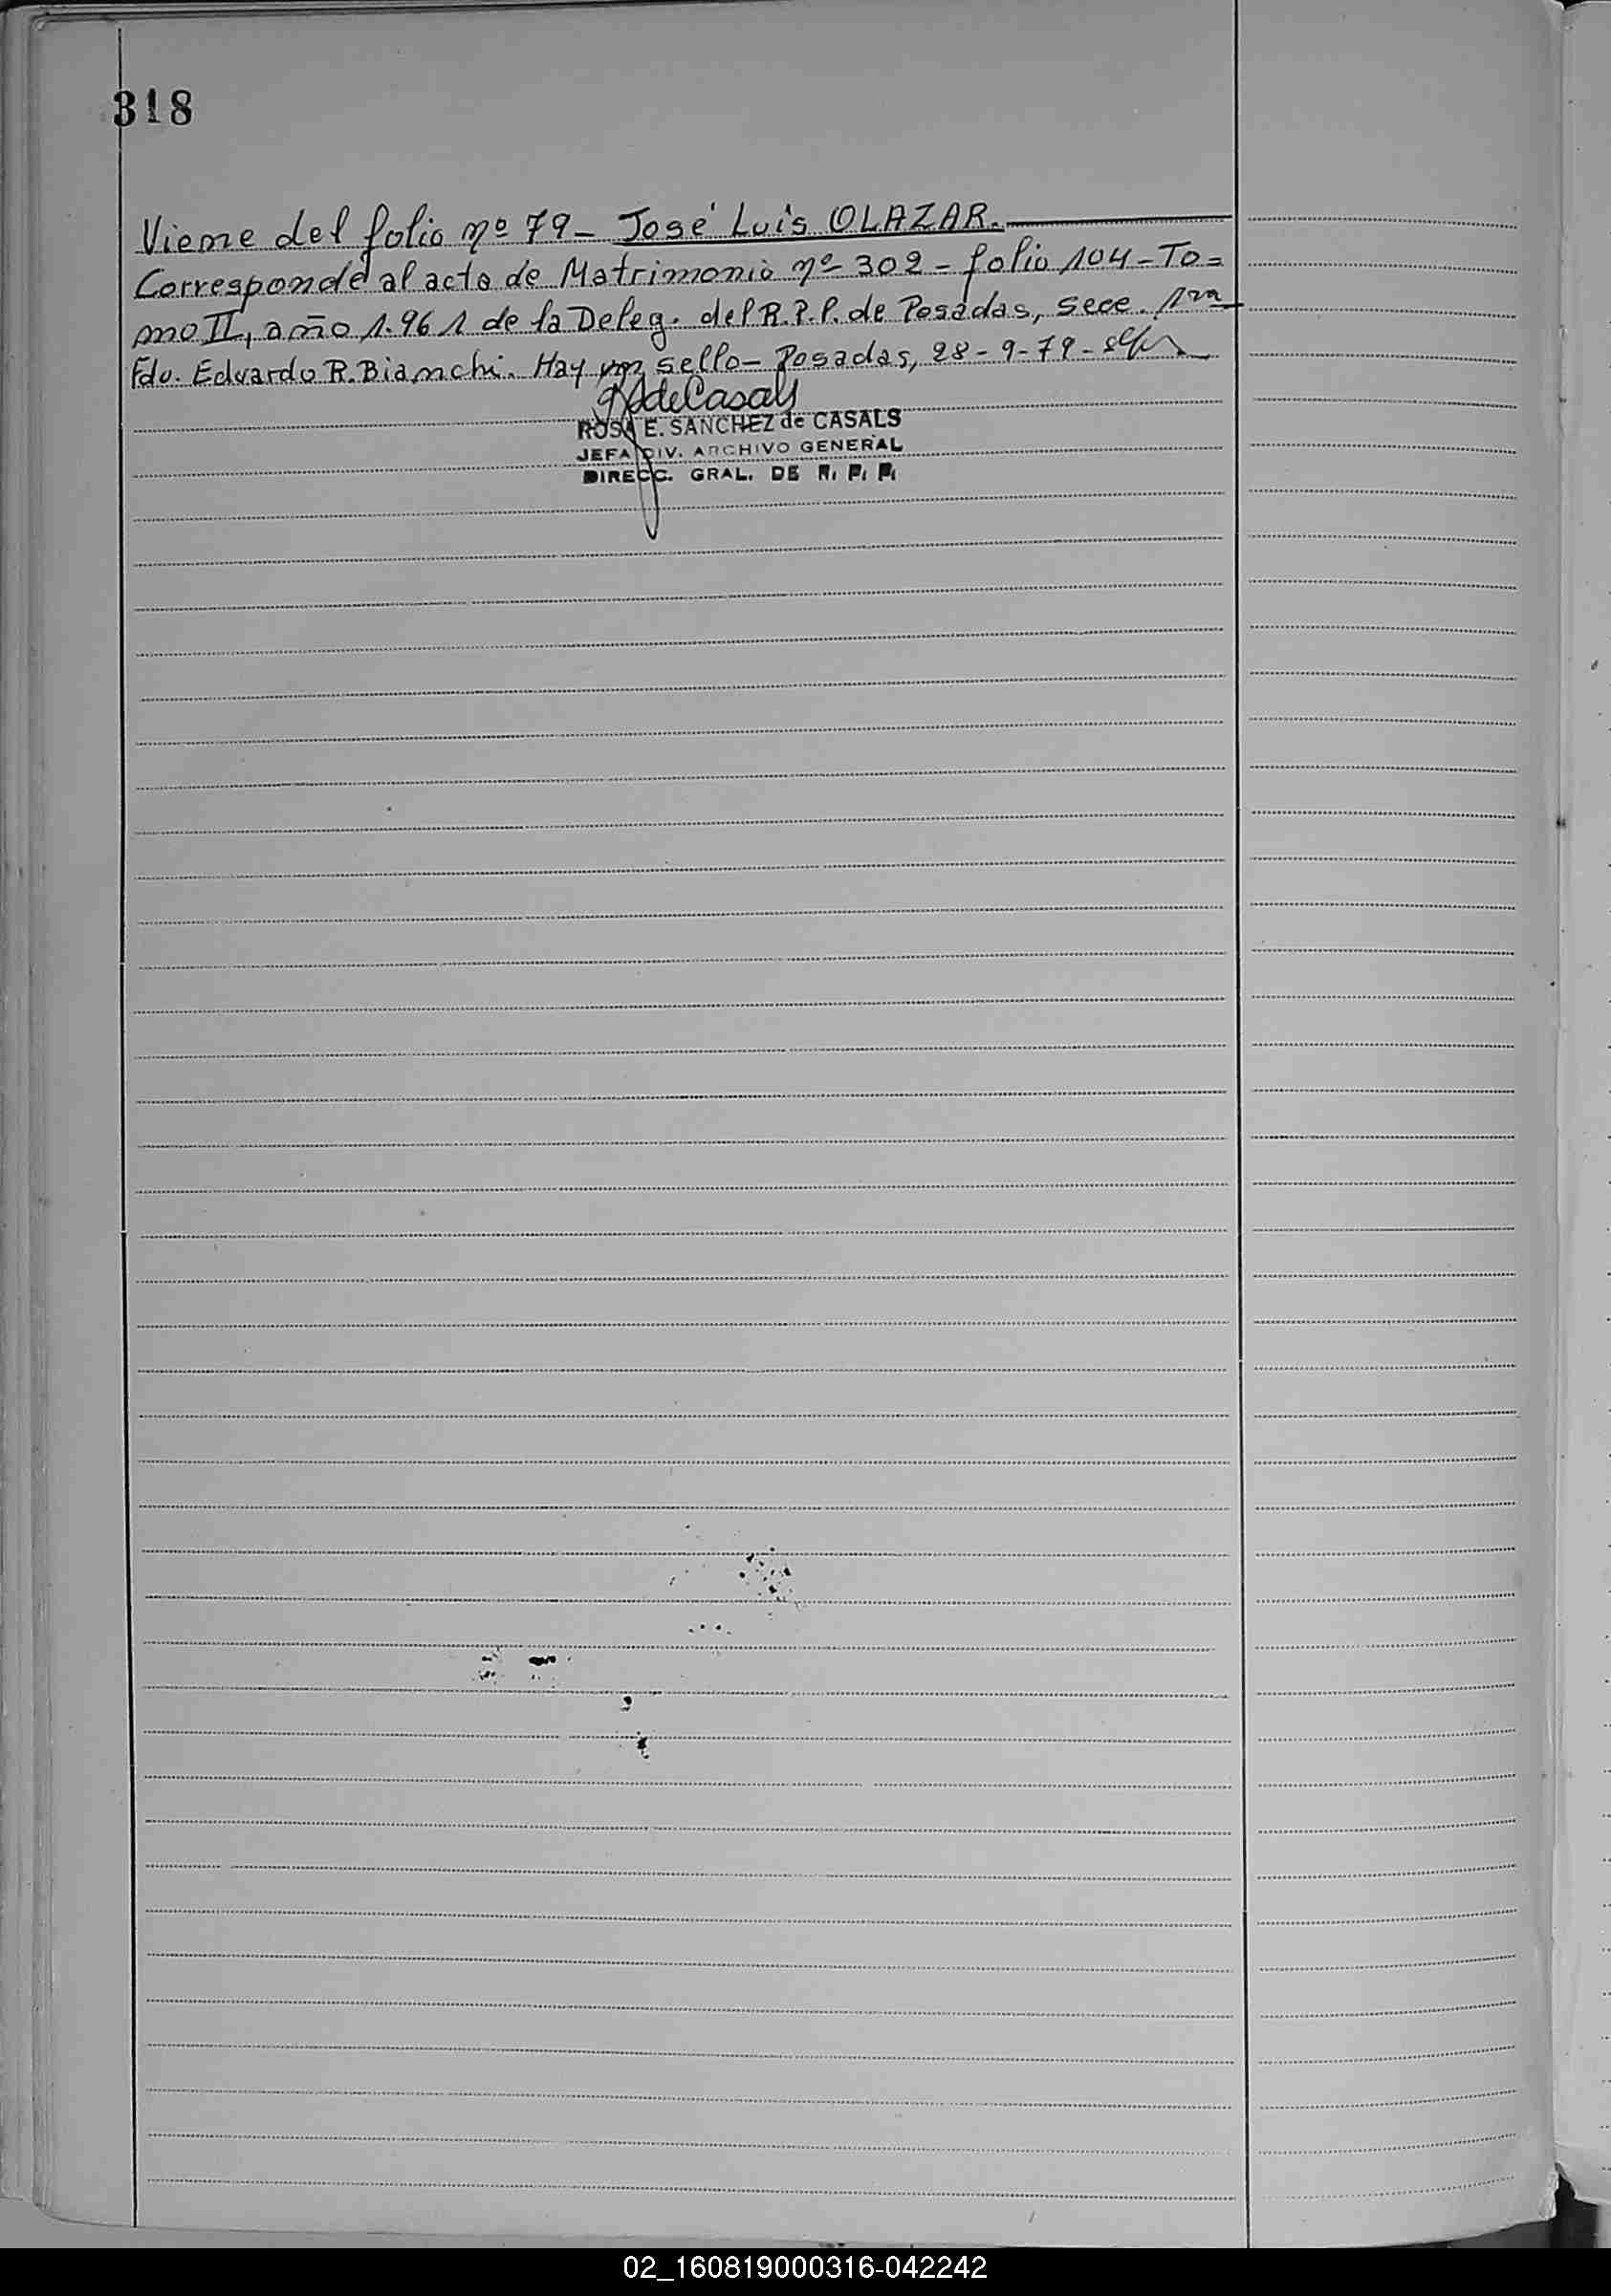 318
Viene del folio nº 79- José Luis OLAZAR.
Corresponde al acta de Matrimonio nº 302- folio 104-To=
mo II, año 1.961 de la Deleg. del R.P.P. de Posadas, secc. 1ra
Fdo. Eduardo R. Bianchi. Hay un sello- Posadas, 28-9-79-
RdeCasals
ROSA E. SANCHEZ de CASALS
JEFA DIV. ARCHIVO GENERAL
DIRECC. GRAL. DE R. P. P.
02_160819000316-042242